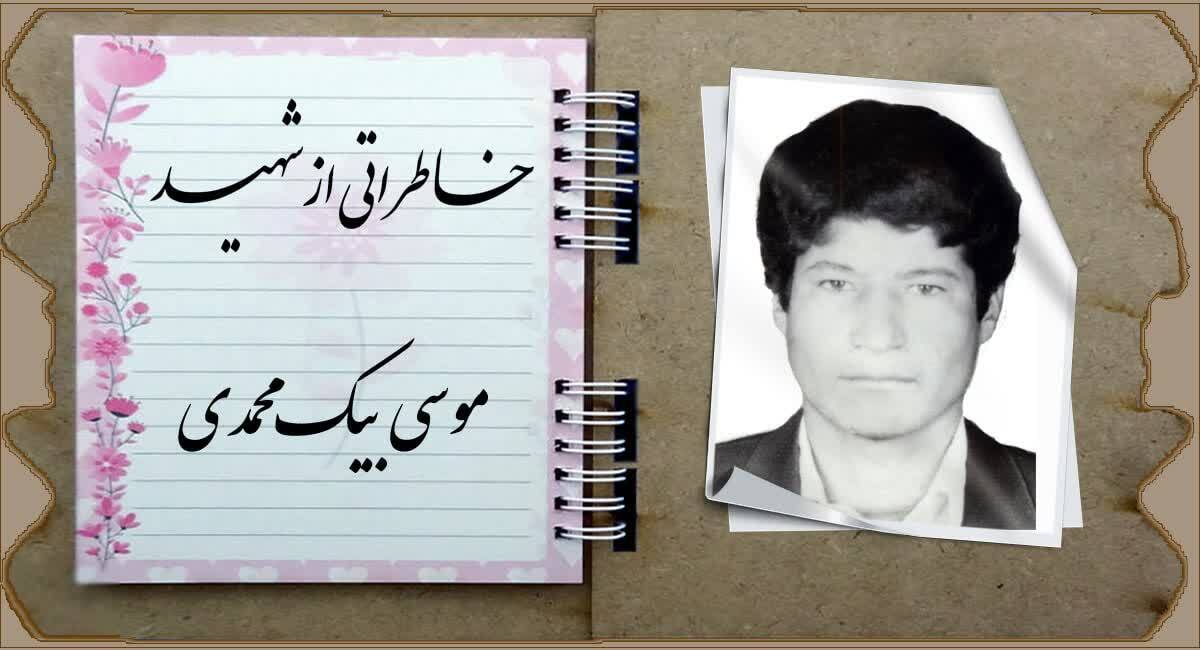 خاطراتی از شهید
موسی بیک محمدی